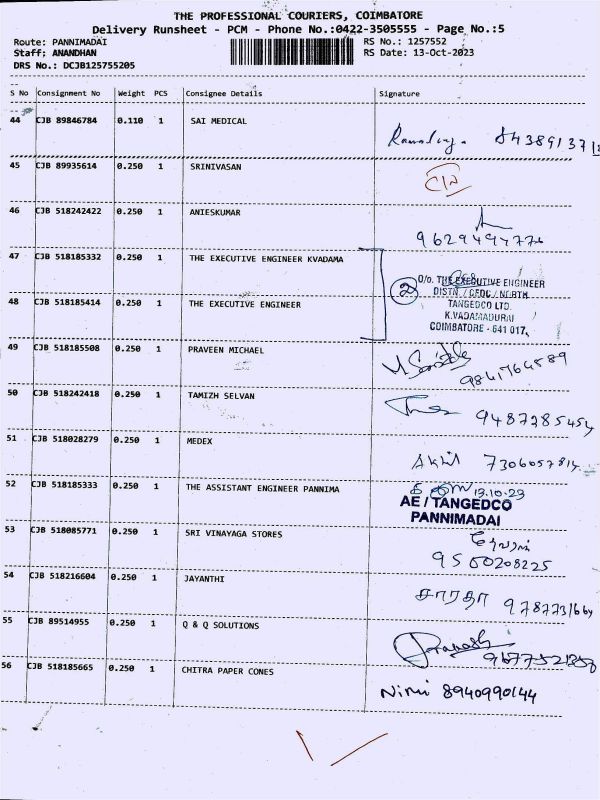 THE PROFESSIONAL COURIERS, COIMBATORE
Delivery Runsheet - PCM - Phone No.:0422-3505555 - Page No.:5
Route: PANNIMADAI RS No.: 1257552
Staff: ANANDHAN RS Date: 13-Oct-2023
DRS No.: DCJB125755205
S No Consignment No Weight PCS Consignee Details Signature
44 CJB 89846784 0.110 1 SAI MEDICAL
45 CJB 89935614 0.250 1 SRINIVASAN
46 CJB 518242422 0.250 1 ANIESKUMAR
47 CJB 518185332 0.250 1 THE EXECUTIVE ENGINEER KVADAMA
2 O/o. THE EXECUTIVE ENGINEER
DISTN. / CEDC / NORTH
48 CJB 518185414 0.250 1 THE EXECUTIVE ENGINEER TANGEDCO LTD.
K.VADAMADURAI
COIMBATORE - 641 017.
49 CJB 518185508 0.250 1 PRAVEEN MICHAEL 9841764589
50 CJB 518242418 0.250 1 TAMIZH SELVAN 9487285454
51 CJB 518028279 0.250 1 MEDEX 7306057814
52 CJB 518185333 0.250 1 THE ASSISTANT ENGINEER PANNIMA 13.10.23
AE / TANGEDCO
PANNIMADAI
53 CJB 518085771 0.250 1 SRI VINAYAGA STORES
9500208225
54 CJB 518216604 0.250 1 JAYANTHI சாரதா
55 CJB 89514955 0.250 1 Q & Q SOLUTIONS Prakash
56 CJB 518185665 0.250 1 CHITRA PAPER CONES Nirmi 8940990144